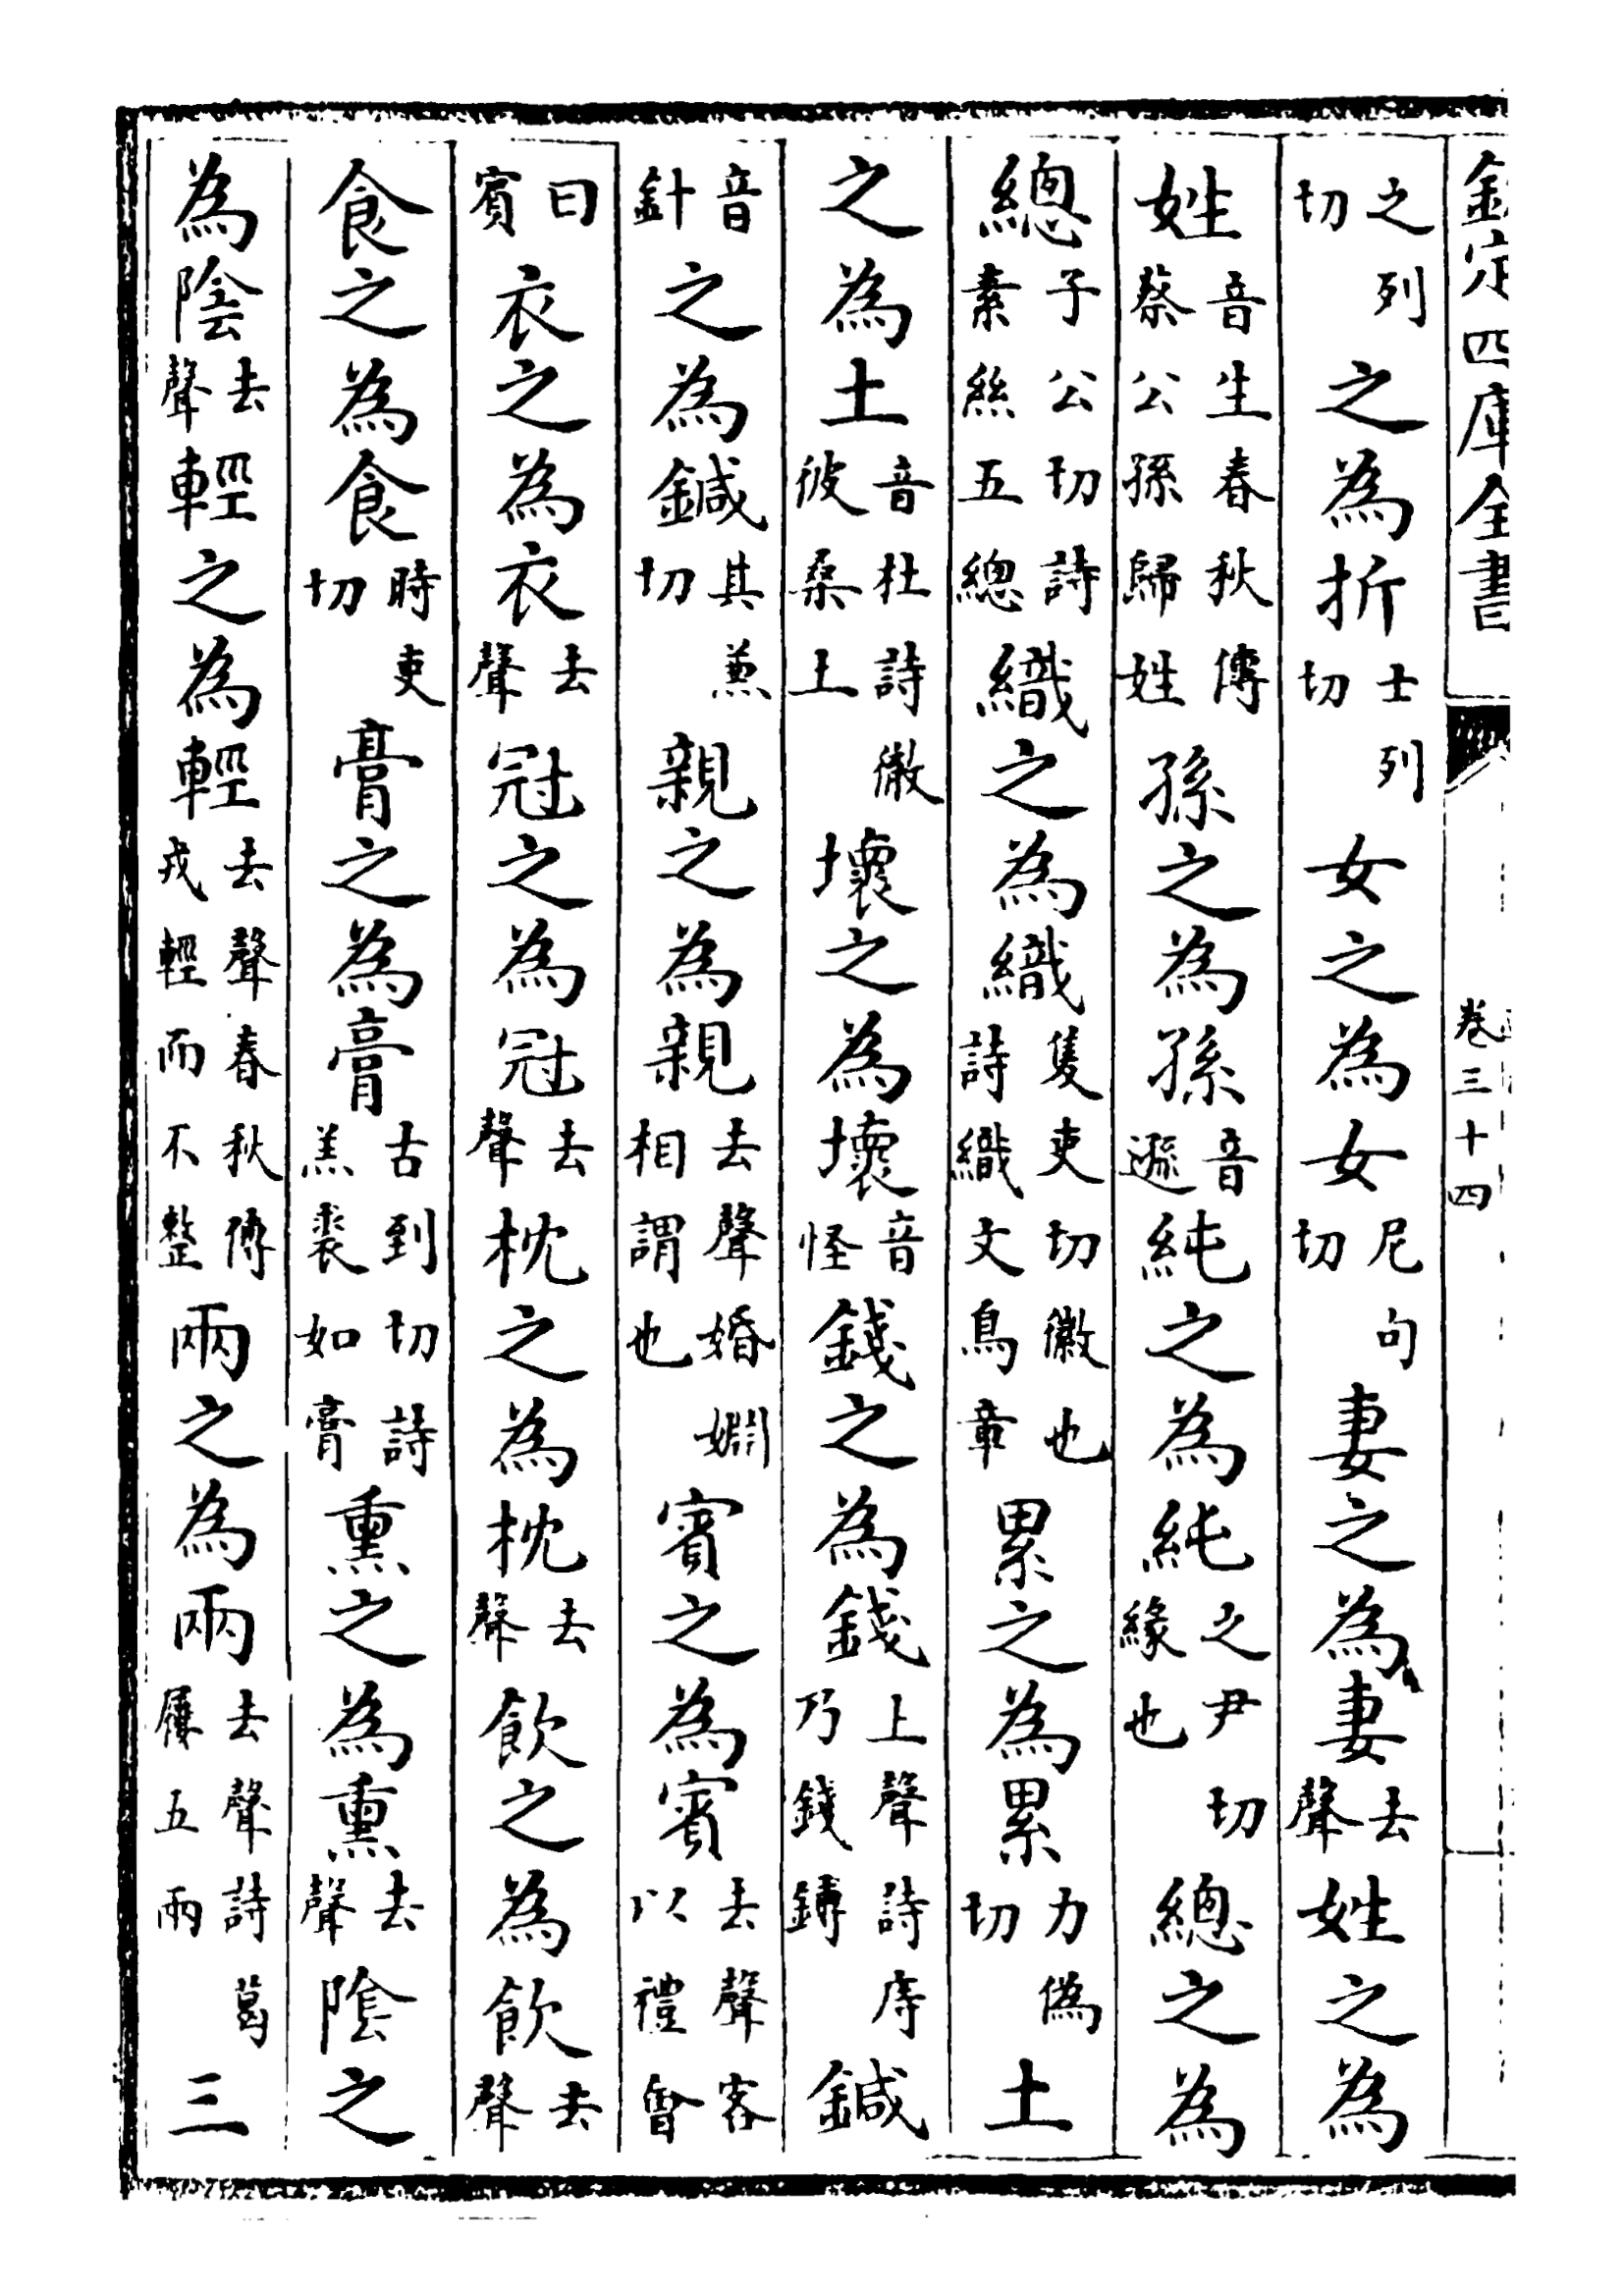 欽定四庫全書
卷三十四
之列切之為折士列切女之為女尼句切妻之為妻去聲姓之為
姓音生春秋傳蔡公孫歸姓孫之為孫音遜純之為純之尹切緣也總之為
總子公切詩素絲五總織之為織隻吏切徽也詩織文鳥章累之為累力偽切土
之為土音杜詩徹彼桑土壞之為壞音怪錢之為錢上聲詩庤乃錢鎛鍼
音針之為鍼其兼切親之為親去聲婚姻相謂也賓之為賓去聲客以禮會
曰賓衣之為衣去聲冠之為冠去聲枕之為枕去聲飲之為飲去聲
食之為食時吏切膏之為膏古到切詩羔裘如膏熏之為熏去聲陰之
為陰去聲輕之為輕去聲春秋傳戎輕而不整兩之為兩去聲詩葛屨五兩三